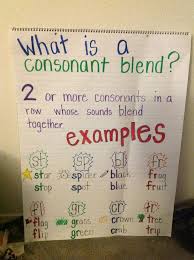 What is a
consonant blend?
2 or more consonants in a
row whose sounds blend
together.
examples
st sp bl fr
star spider black frog
stop spot blue fruit
fl gr cr tr
flag grass crown tree
flip green crab trip